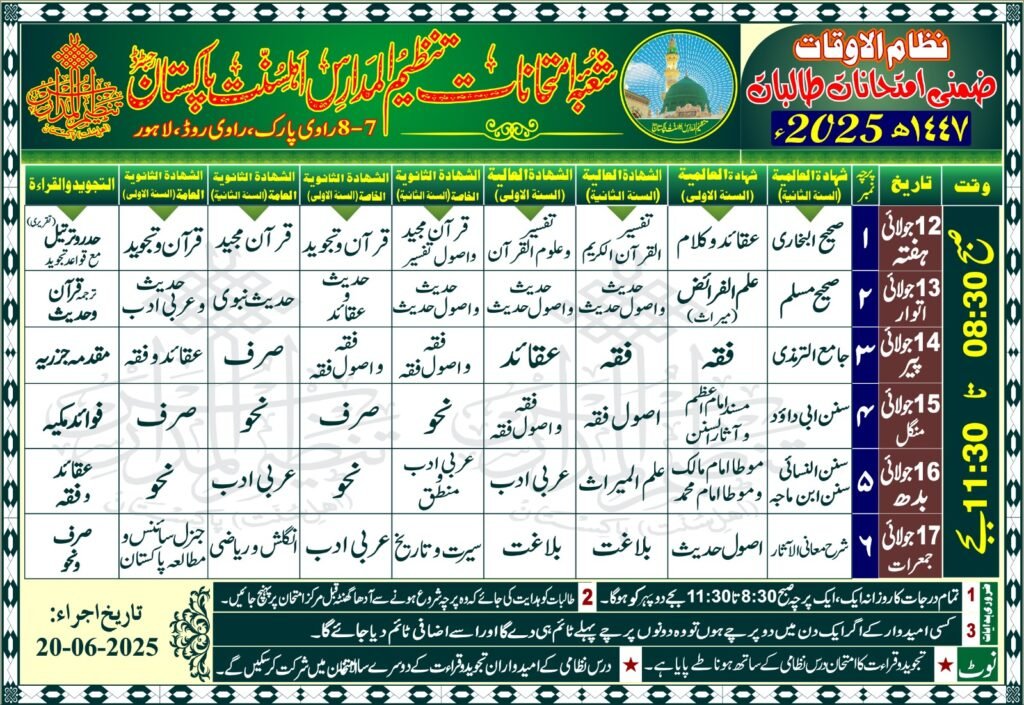 نظام الاوقات
ضمنی امتحانات طالبات
۱۴۴۷ھ 2025ء
شعبہ امتحانات تنظیم المدارس اہلسنّت پاکستان
7-8 راوی پارک، راوی روڈ، لاہور
وقت | تاریخ | پرچہ نمبر | شہادة العالمیة (السنة الثانية) | شہادة العالمیة (السنة الاولى) | الشهادة العالية (السنة الثانية) | الشهادة العالية (السنة الاولى) | الشهادة الثانوية الخاصة (السنة الثانية) | الشهادة الثانوية الخاصة (السنة الاولى) | الشهادة الثانوية العامة (السنة الثانية) | الشهادة الثانوية العامة (السنة الاولى) | التجوید والقراءة
صبح 08:30 تا 11:30 بجے
12 جولائی ہفتہ | ۱ | صحیح البخاری | عقائد و کلام | تفسیر القرآن الکریم | تفسیر و علوم القرآن | قرآن مجید و اصول تفسیر | قرآن و تجوید | قرآن مجید | قرآن و تجوید | حدر و ترتیل (تقریری) مع قواعد تجوید
13 جولائی اتوار | ۲ | صحیح مسلم | علم الفرائض (میراث) | حدیث و اصول حدیث | حدیث و اصول حدیث | حدیث و اصول حدیث | حدیث و عقائد | حدیث نبوی | حدیث و عربی ادب | ترجمہ قرآن و حدیث
14 جولائی پیر | ۳ | جامع الترمذی | فقہ | فقہ | عقائد | فقہ و اصول فقہ | فقہ و اصول فقہ | صرف | عقائد و فقہ | مقدمہ جزریہ
15 جولائی منگل | ۴ | سنن ابی داؤد | مسند امام اعظم و آثار السنن | اصول فقہ | فقہ و اصول فقہ | نحو | صرف | نحو | صرف | فوائد مکیہ
16 جولائی بدھ | ۵ | سنن النسائی سنن ابن ماجہ | موطا امام مالک و موطا امام محمد | علم المیراث | عربی ادب | عربی ادب منطق | نحو | عربی ادب | نحو | عقائد و فقہ
17 جولائی جمعرات | ۶ | شرح معانی الآثار | اصول حدیث | بلاغت | بلاغت | سیرت و تاریخ | عربی ادب | انگلش و ریاضی | جنرل سائنس و مطالعہ پاکستان | صرف و نحو
ضروری ہدایات
1 تمام درجات کا روزانہ ایک، ایک پرچہ صبح 8:30 تا 11:30 بجے دوپہر کو ہوگا۔ 2 طالبات کو ہدایت کی جائے کہ وہ پرچہ شروع ہونے سے آدھا گھنٹہ قبل مرکز امتحان پر پہنچ جائیں۔
3 کسی امیدوار کے اگر ایک دن میں دو پرچے ہوں تو وہ دونوں پرچے پہلے ٹائم ہی دے گا اور اسے اضافی ٹائم دیا جائے گا۔
نوٹ ★ تجوید و قراءت کا امتحان درس نظامی کے ساتھ ہونا طے پایا ہے۔ ★ درس نظامی کے امیدواران تجوید و قراءت کے دوسرے سالانہ امتحان میں شرکت کر سکیں گے۔
تاریخ اجراء:
20-06-2025